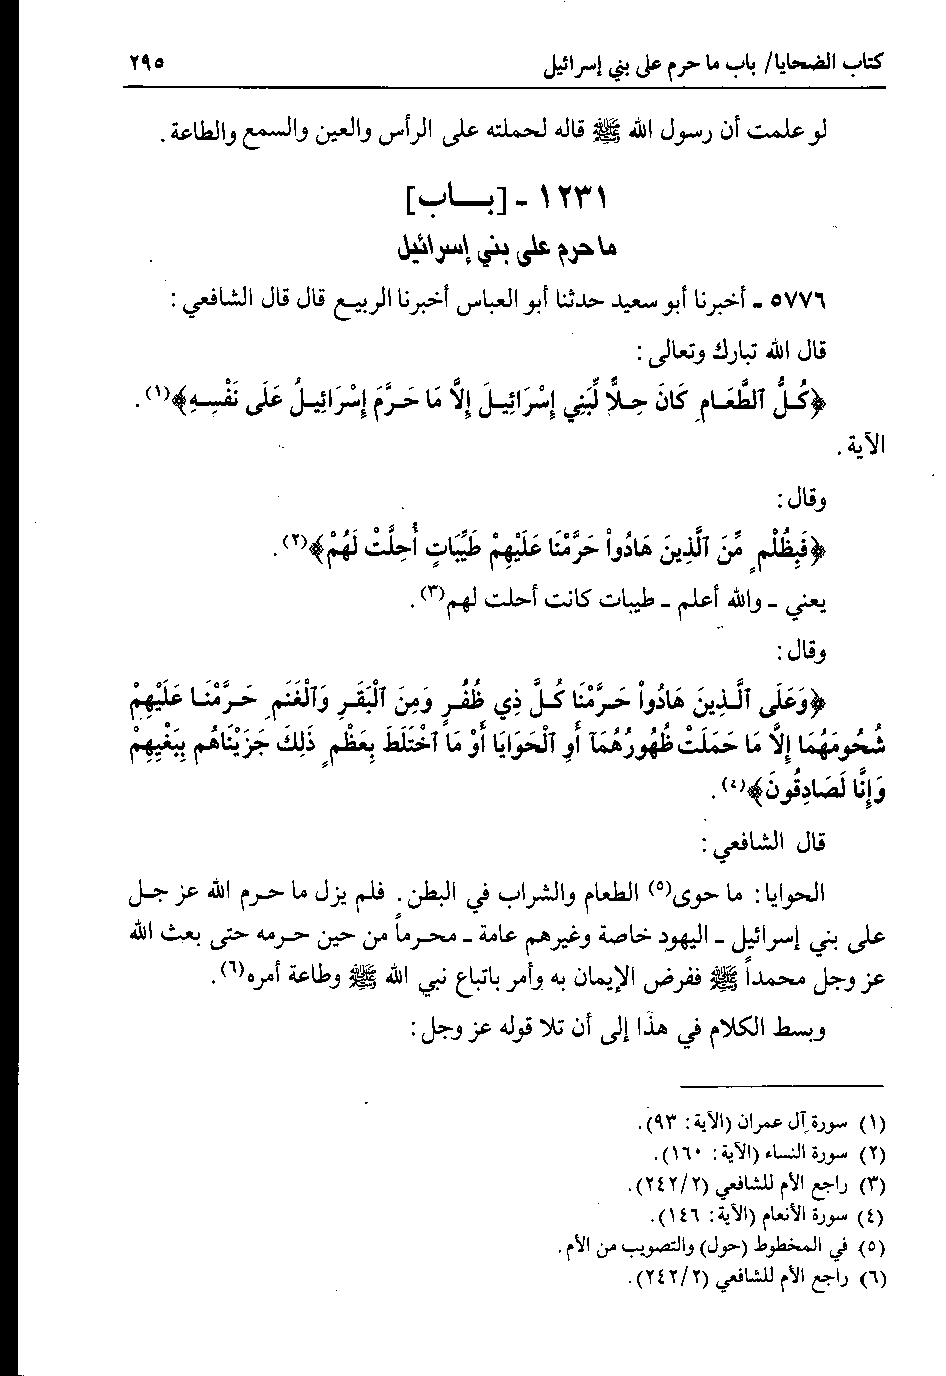 كتاب الضحايا/ باب ما حرم على بني إسرائيل ٢٩٥
لو علمت أن رسول الله ﷺ قاله لحملته على الرأس والعين والسمع والطاعة.
١٢٣١ - [بــاب]
ما حرم على بني إسرائيل
٥٧٧٦ - أخبرنا أبو سعيد حدثنا أبو العباس أخبرنا الربيع قال قال الشافعي:
قال الله تبارك وتعالى:
﴿كُلُّ ٱلطَّعَامِ كَانَ حِلاًّ لِّبَنِي إِسْرَائِيلَ إِلاَّ مَا حَرَّمَ إِسْرَائِيلُ عَلَى نَفْسِهِ﴾(١).
الآية.
وقال:
﴿فَبِظُلْمٍ مِّنَ ٱلَّذِينَ هَادُواْ حَرَّمْنَا عَلَيْهِمْ طَيِّبَاتٍ أُحِلَّتْ لَهُمْ﴾(٢).
يعني - والله أعلم - طيبات كانت أحلت لهم(٣).
وقال:
﴿وَعَلَى ٱلَّذِينَ هَادُواْ حَرَّمْنَا كُلَّ ذِي ظُفُرٍ وَمِنَ ٱلْبَقَرِ وَٱلْغَنَمِ حَرَّمْنَا عَلَيْهِمْ
شُحُومَهُمَا إِلاَّ مَا حَمَلَتْ ظُهُورُهُمَآ أَوِ ٱلْحَوَايَا أَوْ مَا ٱخْتَلَطَ بِعَظْمٍ ذَلِكَ جَزَيْنَاهُم بِبَغْيِهِمْ
وَإِنَّا لَصَادِقُونَ﴾(٤).
قال الشافعي:
الحوايا: ما حوى(٥) الطعام والشراب في البطن. فلم يزل ما حرم الله عز جل
على بني إسرائيل - اليهود خاصة وغيرهم عامة - محرماً من حين حرمه حتى بعث الله
عز وجل محمداً ﷺ ففرض الإيمان به وأمر باتباع نبي الله ﷺ وطاعة أمره(٦).
وبسط الكلام في هذا إلى أن تلا قوله عز وجل:
(١) سورة آل عمران (الآية: ٩٣).
(٢) سورة النساء (الآية: ١٦٠).
(٣) راجع الأم للشافعي (٢/٢٤٢).
(٤) سورة الأنعام (الآية: ١٤٦).
(٥) في المخطوط (حول) والتصويب من الأم.
(٦) راجع الأم للشافعي (٢/٢٤٢).